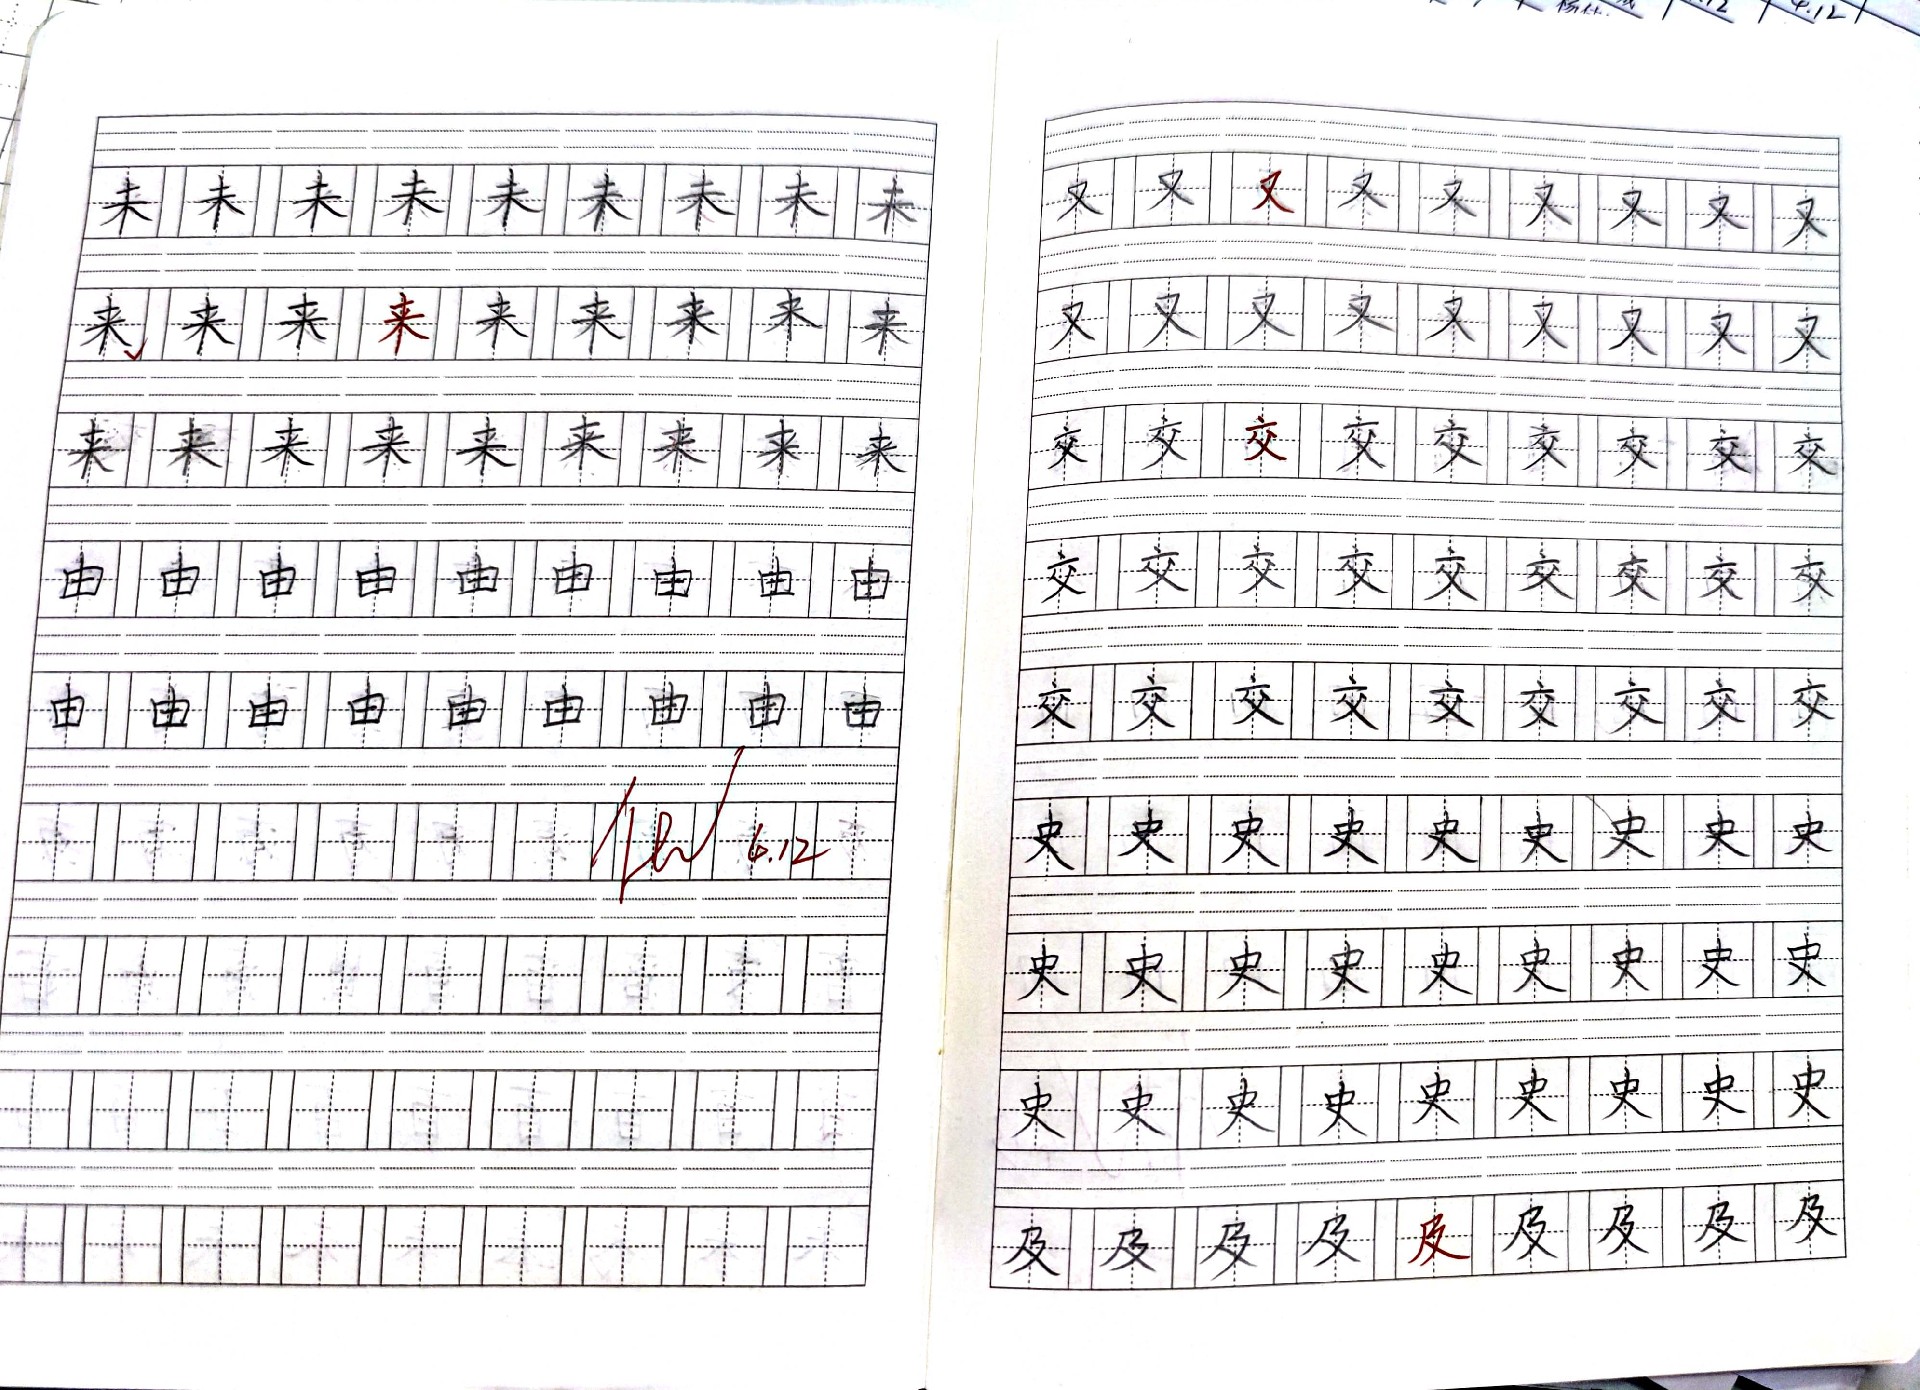 4.12
未未未未未未未未未
来来来来来来来来来
来来来来来来来来来
由由由由由由由由由
由由由由由由由由由
6.12
又又又又又又又又又
又又又又又又又又又
交交交交交交交交交
交交交交交交交交交
交交交交交交交交交
史史史史史史史史史
史史史史史史史史史
史史史史史史史史史
及及及及及及及及及